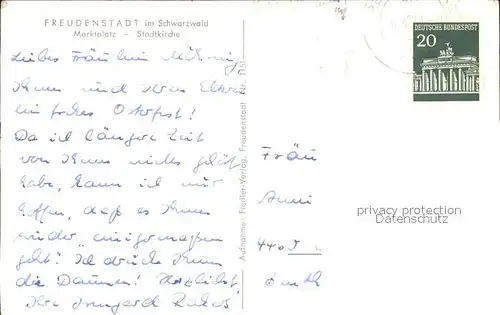 FREUDENSTADT im Schwarzwald
Marktplatz - Stadtkirche
DEUTSCHE BUNDESPOST
20
Liebes Fräulein
Ihnen und Ihren Eltern
ein frohes Osterfest!
Da ich längere Zeit
von Ihnen nichts gehört
habe, kann ich nur
hoffen, daß es Ihnen
wieder einigermaßen
geht! Ich drücke Ihnen
die Daumen! Herzlichst,
Ihre Irmgard
Aufnahme: Fiedler-Verlag, Freudenstadt Nr.
Fräu
Anni
privacy protection
Datenschutz